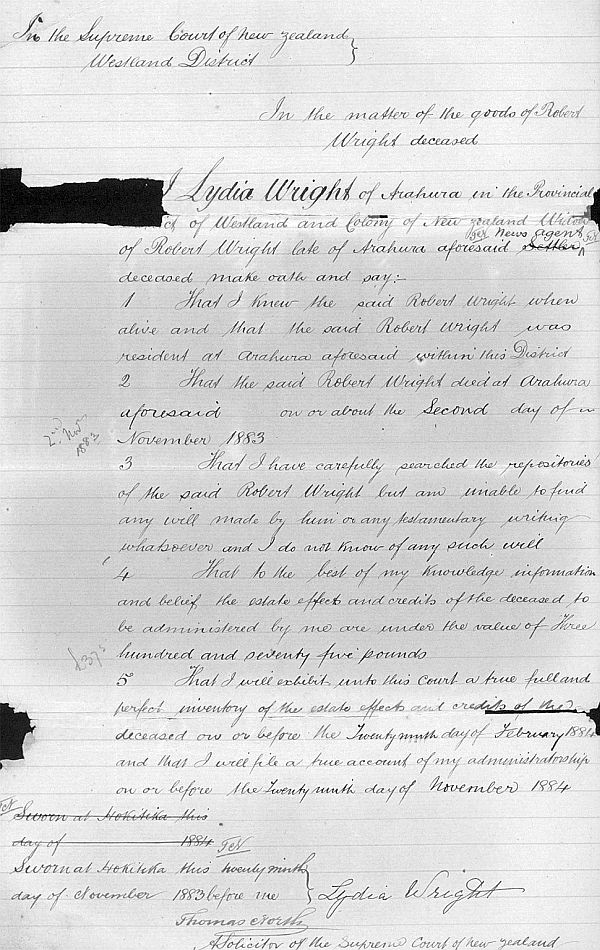 In the Supreme Court of New Zealand
Westland District
In the matter of the goods of Robert
Wright deceased
I Lydia Wright of Arahura in the Provincial
ct of Westland and Colony of New Zealand Widow
News agent
of Robert Wright late of Arahura aforesaid Settler
deceased make oath and say:-
1 That I knew the said Robert Wright when
alive and that the said Robert Wright was
resident at Arahura aforesaid within this District
2 That the said Robert Wright died at Arahura
aforesaid on or about the Second day of
2nd Nov
1883
November 1883
3 That I have carefully searched the repositories
of the said Robert Wright but am unable to find
any will made by him or any testamentary writing
whatsoever and I do not know of any such will
4 That to the best of my knowledge information
and belief the estate effects and credits of the deceased to
be administered by me are under the value of Three
£375
hundred and seventy five pounds
5 That I will exhibit unto this Court a true full and
perfect inventory of the estate effects and credits of the
deceased on or before the Twenty ninth day of February 1884
and that I will file a true account of my administratorship
on or before the Twenty ninth day of November 1884
Sworn at Hokitika this
day of 1884
Sworn at Hokitika this twenty ninth
day of November 1883 before me } Lydia Wright
Thomas North
A Solicitor of the Supreme Court of New Zealand